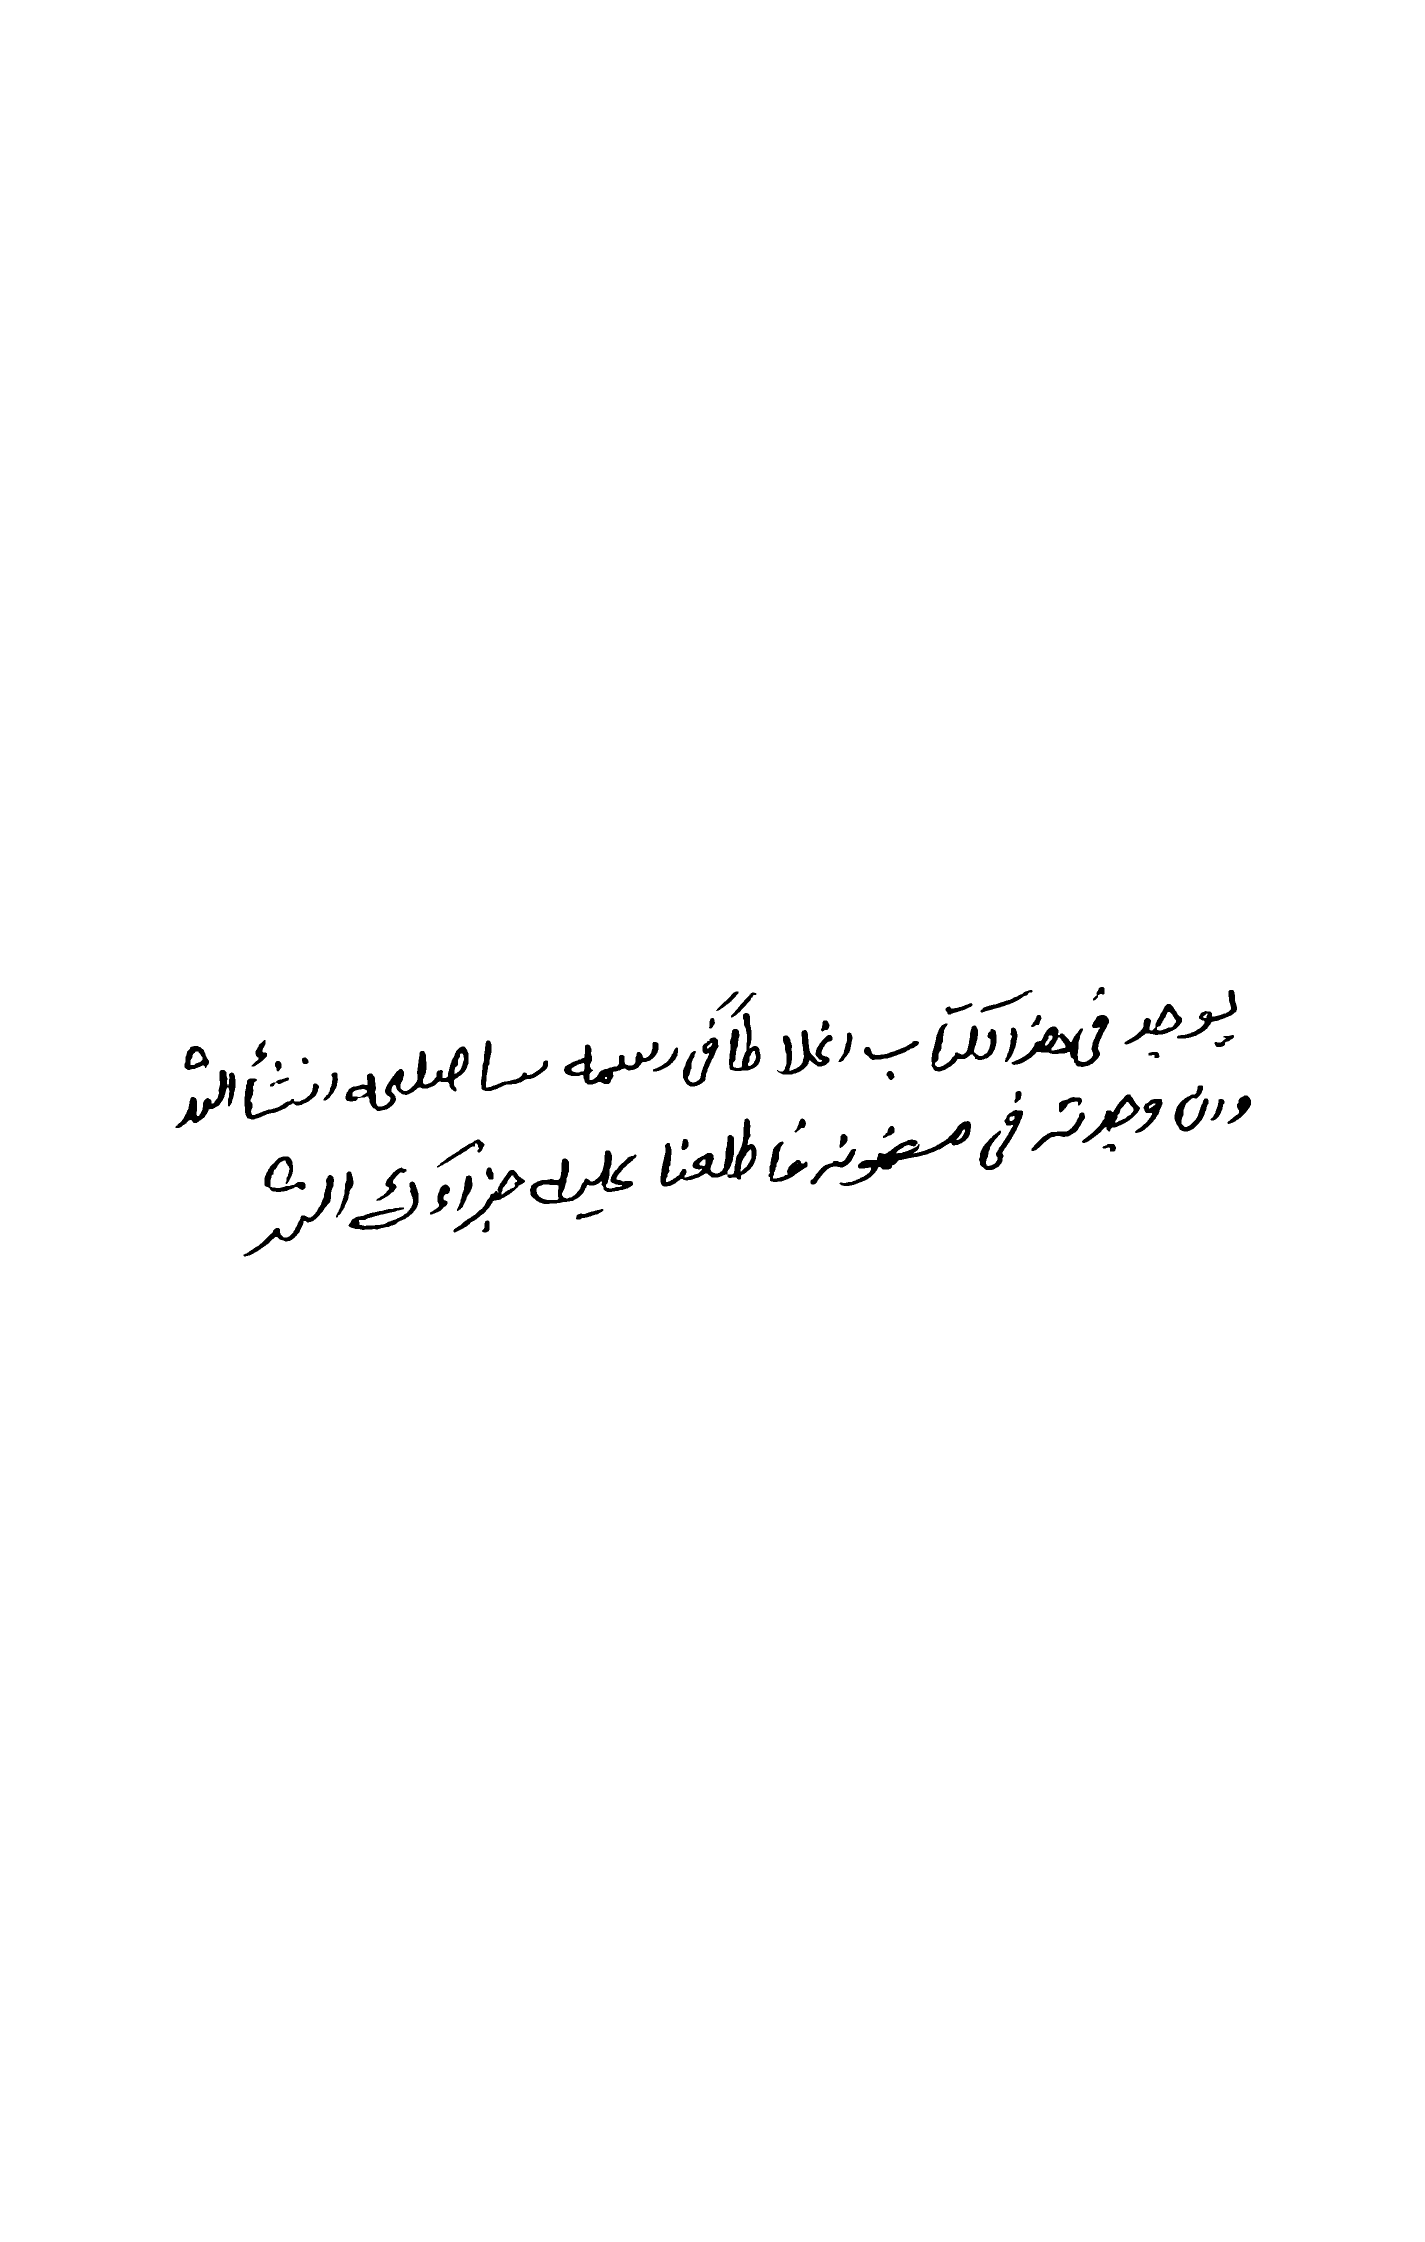 يوجد في هذا الكتاب اغلاطاً في رسمه سا صلحه انشأ الله
وان وجدته في مضمونه فاطلعنا عليه جزآءك الله